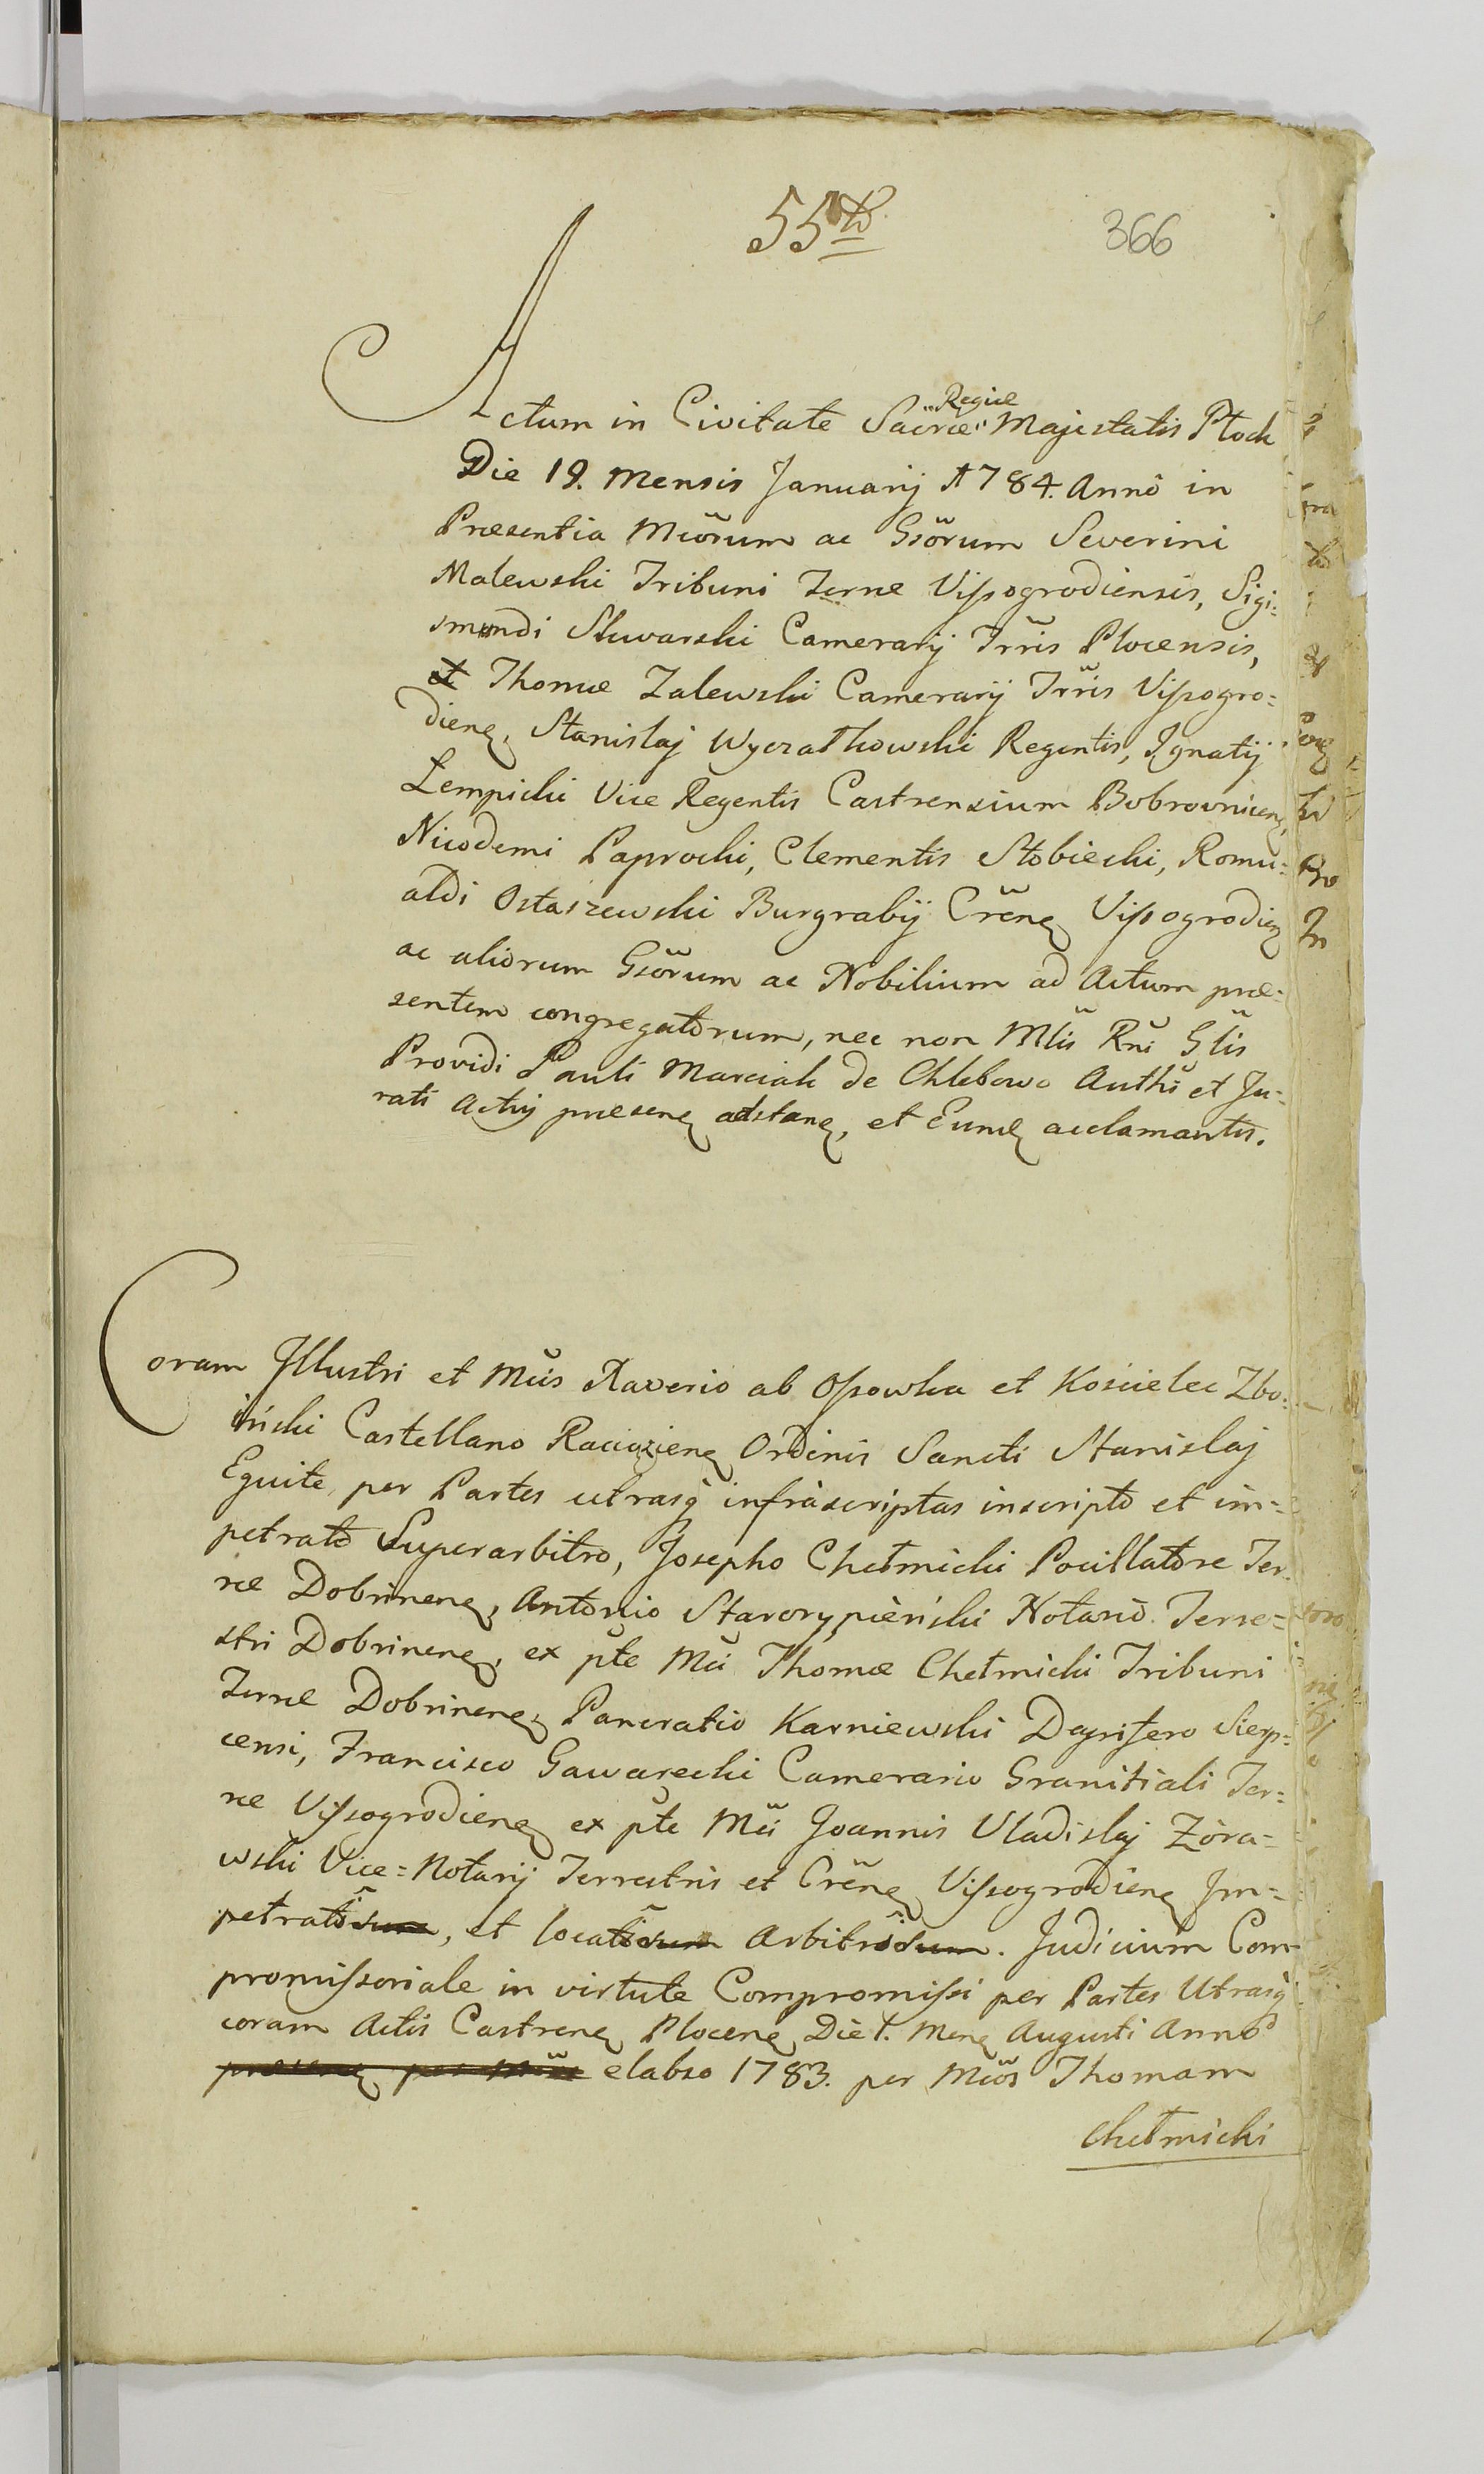 55to
366
Regiæ
Actum in Civitate Sacræ Majestatis Płock
Die 19. Mensis Januarij 1784. Annô in
Præsentia Mcörum ac Gsörum Severini
Malewski Tribuni Terræ Vissogrodiensis, Sigi=
smundi Skwarski Camerarij Trris Plocensis,
et Thomæ Zalewski Camerarij Trris Vissogro=
dieng, Stanislaj Wyczałkowski Regentis, Ignatij
Lempicki Vice Regentis Castrensium Bobrowniceng,
Nicodemi Paprocki, Clementis Stobiecki, Romu=
aldi Ostaszewski Burgrabij Crëng Vissogrodieg
ac aliorum Gsörum ac Nobilium ad Actum præ=
sentem congregatorum, nec non Mtis Rni Glis
Providi Pauli Marciak de Chlebowo Authi et Ju=
rati Actuj præseng adstang, et Eumdg acclamantis.
Coram Illustri et Mcis Xaverio ab Ossowka et Kościelec Zbo=
iński Castellano Raciązieng Ordinis Sancti Stanislaj
Equite, per Partes utrasq infrascriptas inscripto et im=
petrato Superarbitro, Josepho Chełmicki Pocillatore Ter=
ræ Dobrineng, Antonio Starorypiński Notario Terre=
stri Dobrineng, ex pte Mci Thomæ Chełmicki Tribuni
Terræ Dobrineng, Pancratio Karniewski Dapifero Sierp=
censi, Francisco Gawarecki Camerario Granitiali Ter=
ræ Vissogrodieng ex pte Mci Joannis Vladislaj Zóra=
wski Vice=Notarij Terrestris et Crëng Vissogrodieng Im=
petratorum, et locatorum Arbitrorum. Judicium Com=
promissoriale in virtute Compromissi per Partes Utrasq
coram Actis Castreng Ploceng Die 1. Meng Augusti Anno
præseng per Mcos elabso 1783. per Mcos Thomam
Chełmicki